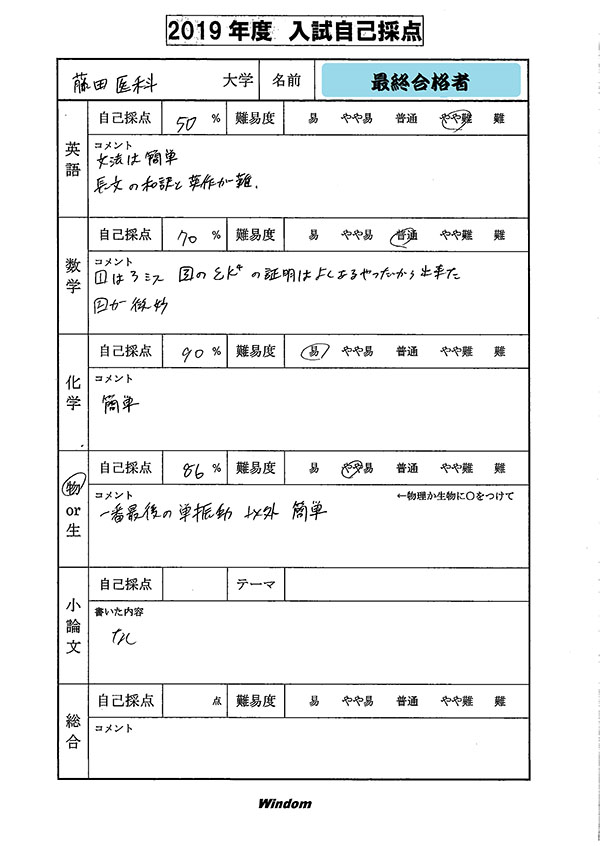 2019年度 入試自己採点
藤田医科 大学 名前 最終合格者
英語 自己採点 50 % 難易度 易 やや易 普通 やや難 難
コメント
文法は簡単
長文の和訳と英作が難.
数学 自己採点 70 % 難易度 易 やや易 普通 やや難 難
コメント
1は3ミス のΣk⁴の証明はよくあるやつだから出来た
が微妙
化学 自己採点 90 % 難易度 易 やや易 普通 やや難 難
コメント
簡単
物or生 自己採点 86 % 難易度 易 やや易 普通 やや難 難
コメント ←物理か生物に○をつけて
一番最後の単振動 以外 簡単
小論文 自己採点 テーマ
書いた内容
なし
総合 自己採点 点 難易度 易 やや易 普通 やや難 難
コメント
Windom